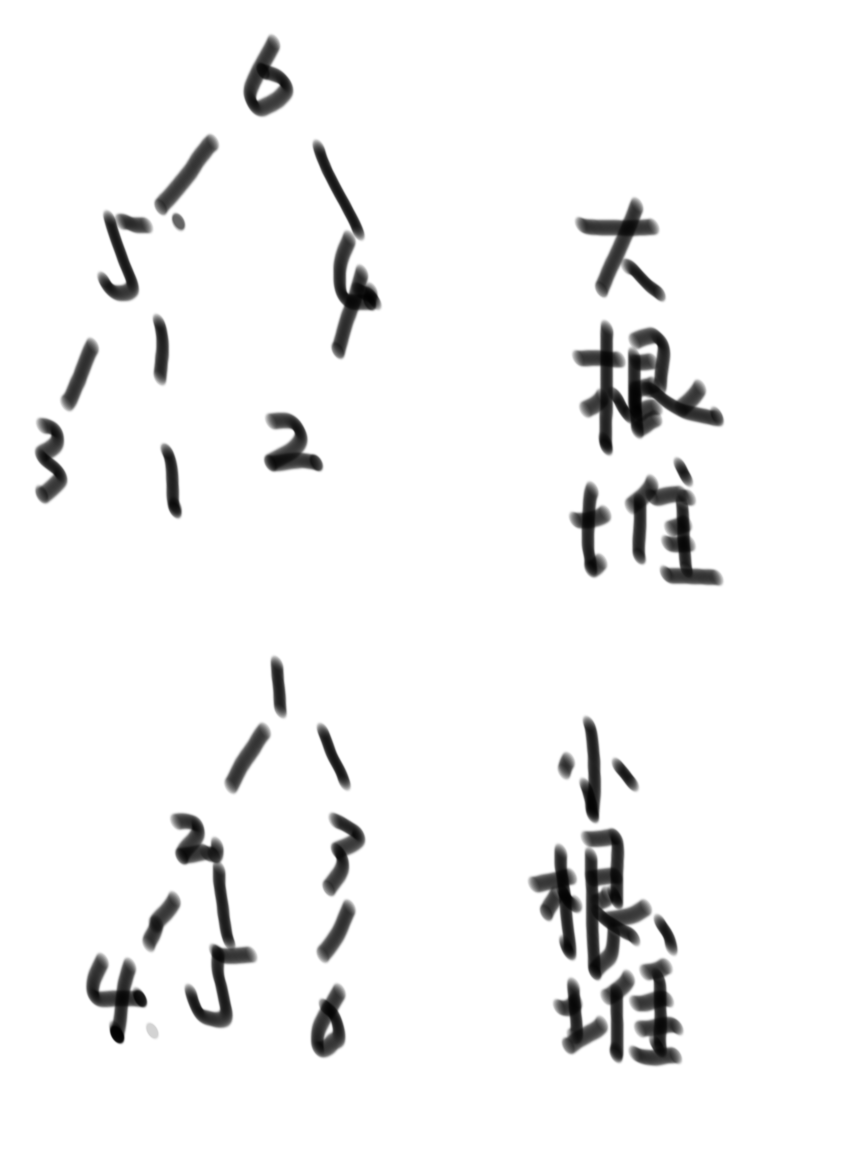 6
5 4
3 1 2
大
根
堆
1
2 3
4 5 6
小
根
堆